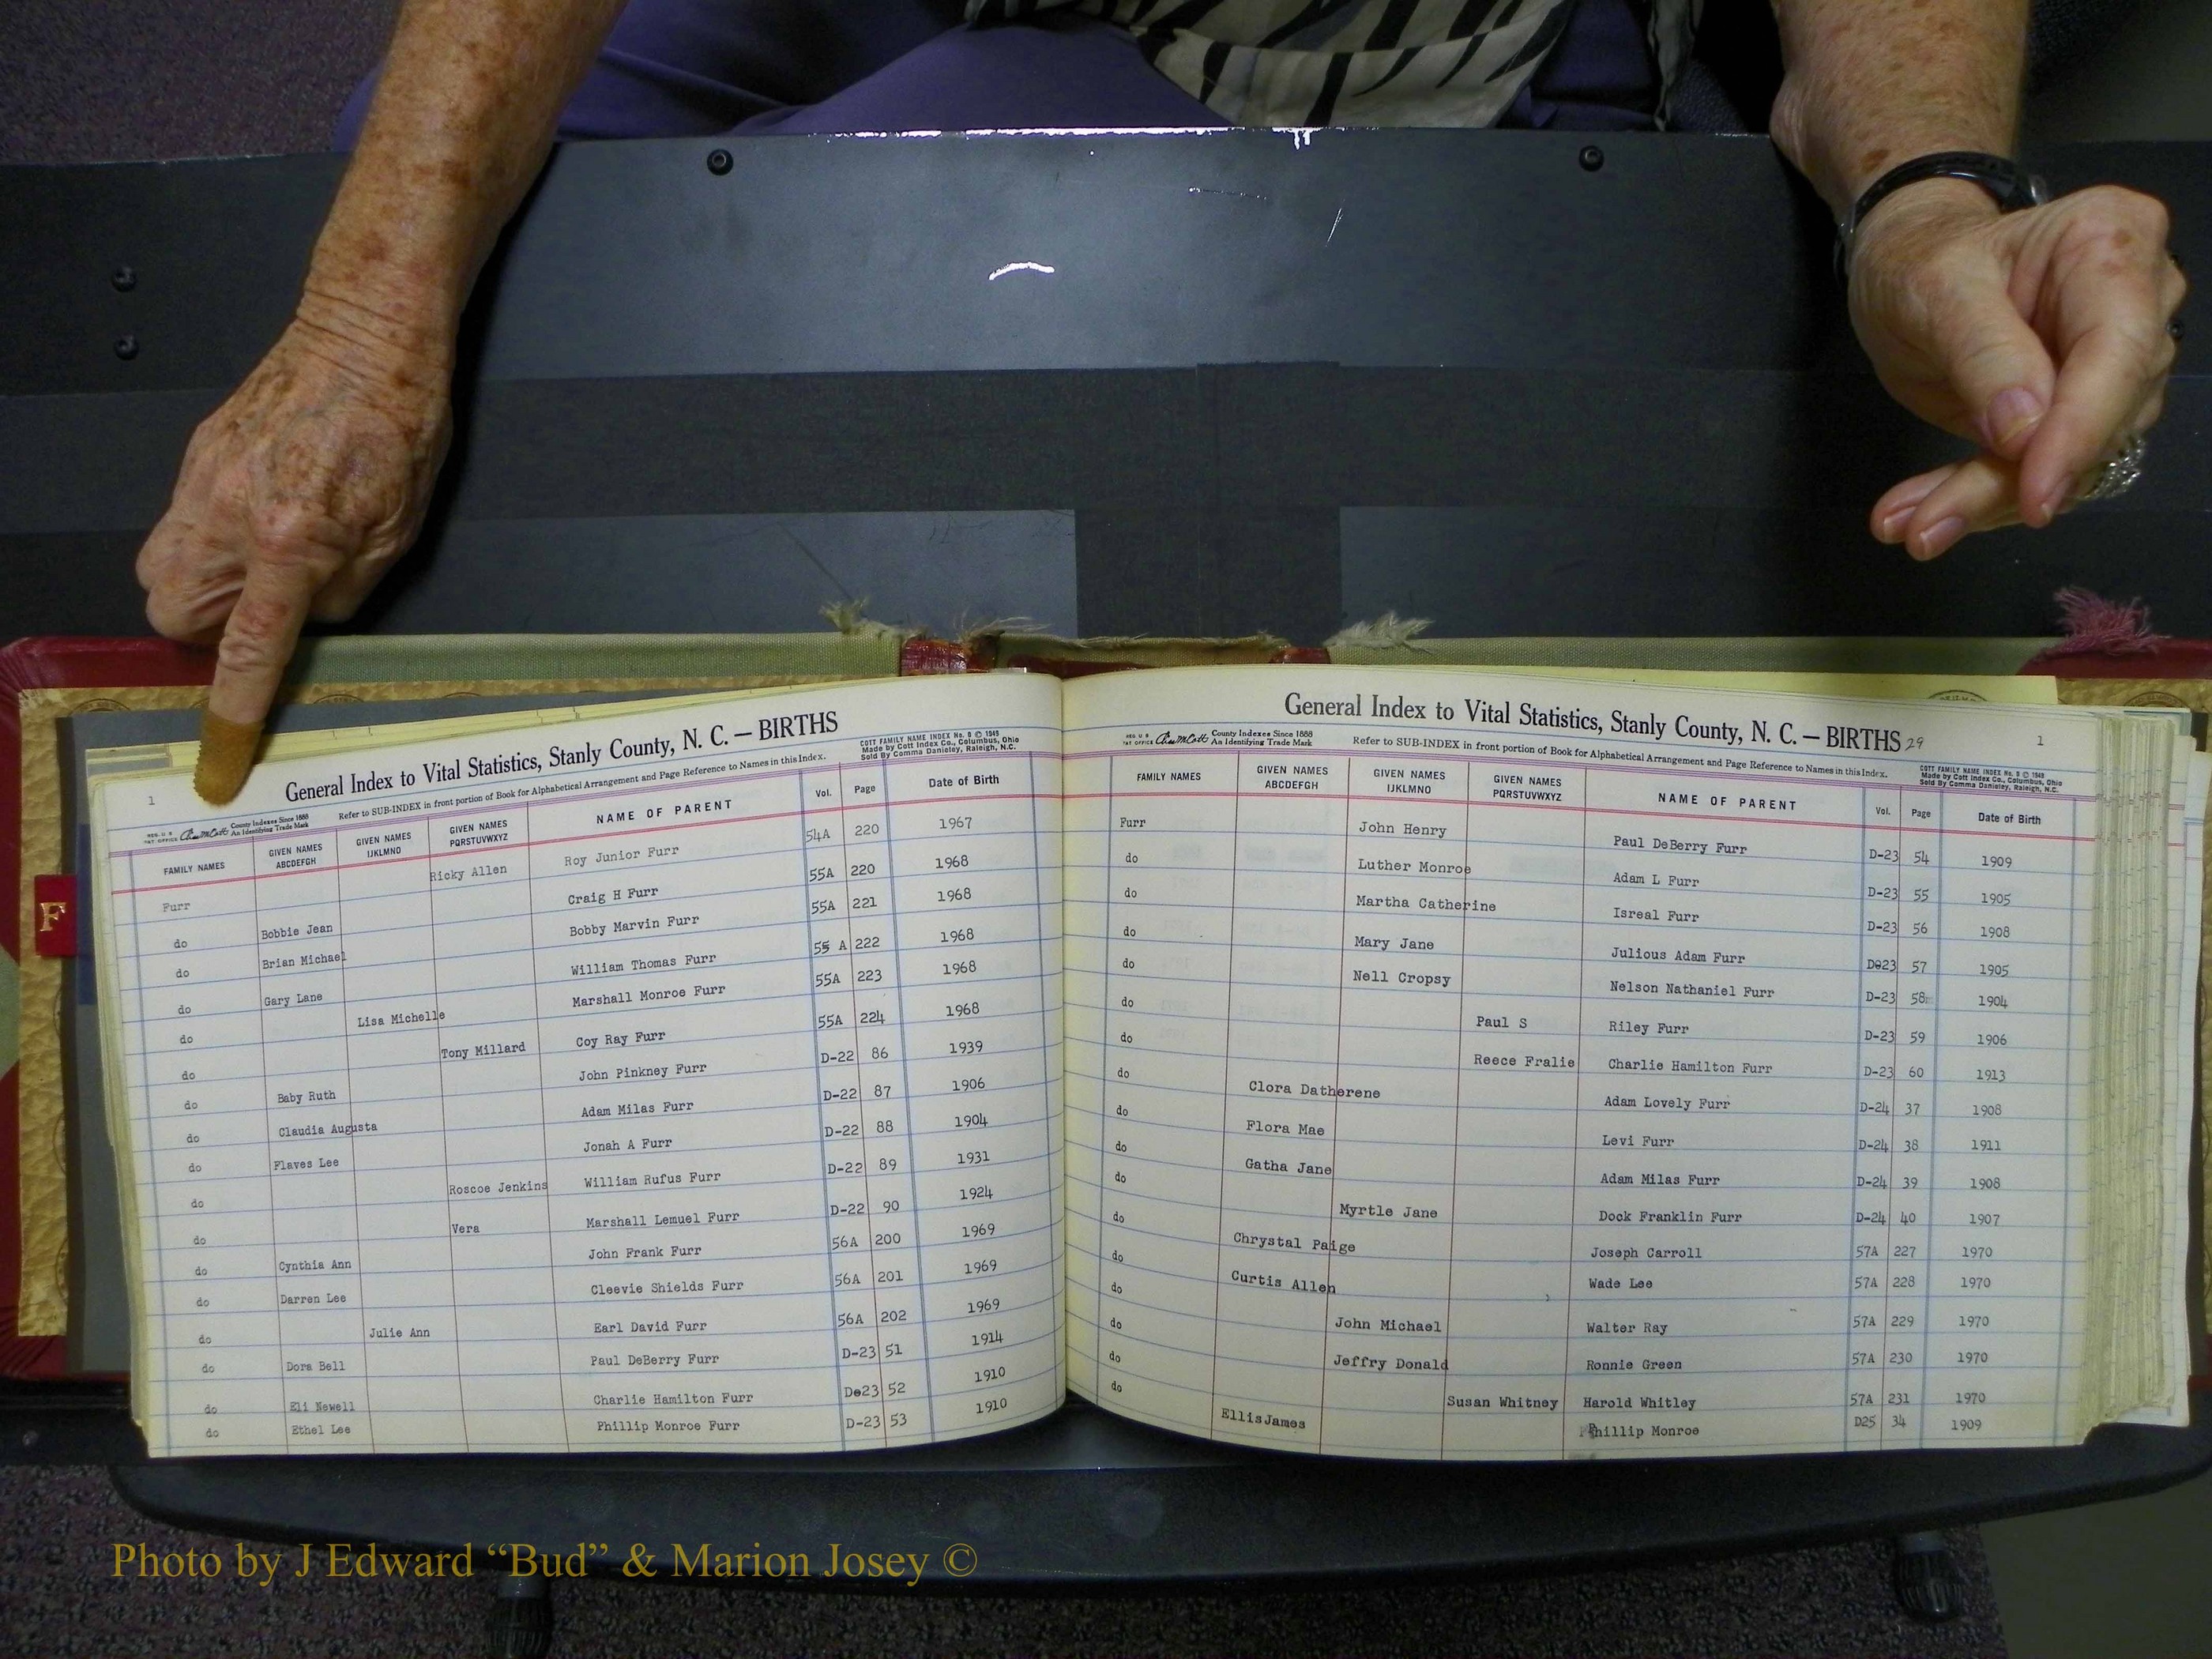 1
General Index to Vital Statistics, Stanly County, N. C. — BIRTHS
COTT FAMILY NAME INDEX No. 9 © 1949
Made by Cott Index Co., Columbus, Ohio
Sold By Comma Danieley, Raleigh, N.C.
REG. U. S. PAT. OFFICE County Indexes Since 1888
An Identifying Trade Mark
Refer to SUB-INDEX in front portion of Book for Alphabetical Arrangement and Page Reference to Names in this Index.
FAMILY NAMES GIVEN NAMES ABCDEFGH GIVEN NAMES IJKLMNO GIVEN NAMES PQRSTUVWXYZ NAME OF PARENT Vol. Page Date of Birth
Furr Ricky Allen Roy Junior Furr 54A 220 1967
do Bobbie Jean Craig H Furr 55A 220 1968
do Brian Michael Bobby Marvin Furr 55A 221 1968
do Gary Lane William Thomas Furr 55 A 222 1968
do Lisa Michelle Marshall Monroe Furr 55A 223 1968
do Tony Millard Coy Ray Furr 55A 224 1968
do Baby Ruth John Pinkney Furr D-22 86 1939
do Claudia Augusta Adam Milas Furr D-22 87 1906
do Flaves Lee Jonah A Furr D-22 88 1904
do Roscoe Jenkins William Rufus Furr D-22 89 1931
do Vera Marshall Lemuel Furr D-22 90 1924
do Cynthia Ann John Frank Furr 56A 200 1969
do Darren Lee Cleevie Shields Furr 56A 201 1969
do Julie Ann Earl David Furr 56A 202 1969
do Dora Bell Paul DeBerry Furr D-23 51 1914
do Eli Newell Charlie Hamilton Furr De23 52 1910
do Ethel Lee Phillip Monroe Furr D-23 53 1910
F
General Index to Vital Statistics, Stanly County, N. C. — BIRTHS 29
1
REG. U. S. PAT. OFFICE County Indexes Since 1888
An Identifying Trade Mark
Refer to SUB-INDEX in front portion of Book for Alphabetical Arrangement and Page Reference to Names in this Index.
COTT FAMILY NAME INDEX No. 9 © 1949
Made by Cott Index Co., Columbus, Ohio
Sold By Comma Danieley, Raleigh, N.C.
FAMILY NAMES GIVEN NAMES ABCDEFGH GIVEN NAMES IJKLMNO GIVEN NAMES PQRSTUVWXYZ NAME OF PARENT Vol. Page Date of Birth
Furr John Henry Paul DeBerry Furr D-23 54 1909
do Luther Monroe Adam L Furr D-23 55 1905
do Martha Catherine Isreal Furr D-23 56 1908
do Mary Jane Julious Adam Furr D023 57 1905
do Nell Cropsy Nelson Nathaniel Furr D-23 58 1904
do Paul S Riley Furr D-23 59 1906
do Reece Fralie Charlie Hamilton Furr D-23 60 1913
do Clora Datherene Adam Lovely Furr D-24 37 1908
do Flora Mae Levi Furr D-24 38 1911
do Gatha Jane Adam Milas Furr D-24 39 1908
do Myrtle Jane Dock Franklin Furr D-24 40 1907
do Chrystal Paige Joseph Carroll 57A 227 1970
do Curtis Allen Wade Lee 57A 228 1970
do John Michael Walter Ray 57A 229 1970
do Jeffry Donald Ronnie Green 57A 230 1970
do Susan Whitney Harold Whitley 57A 231 1970
do Ellis James Phillip Monroe D25 34 1909
Photo by J Edward “Bud” & Marion Josey ©